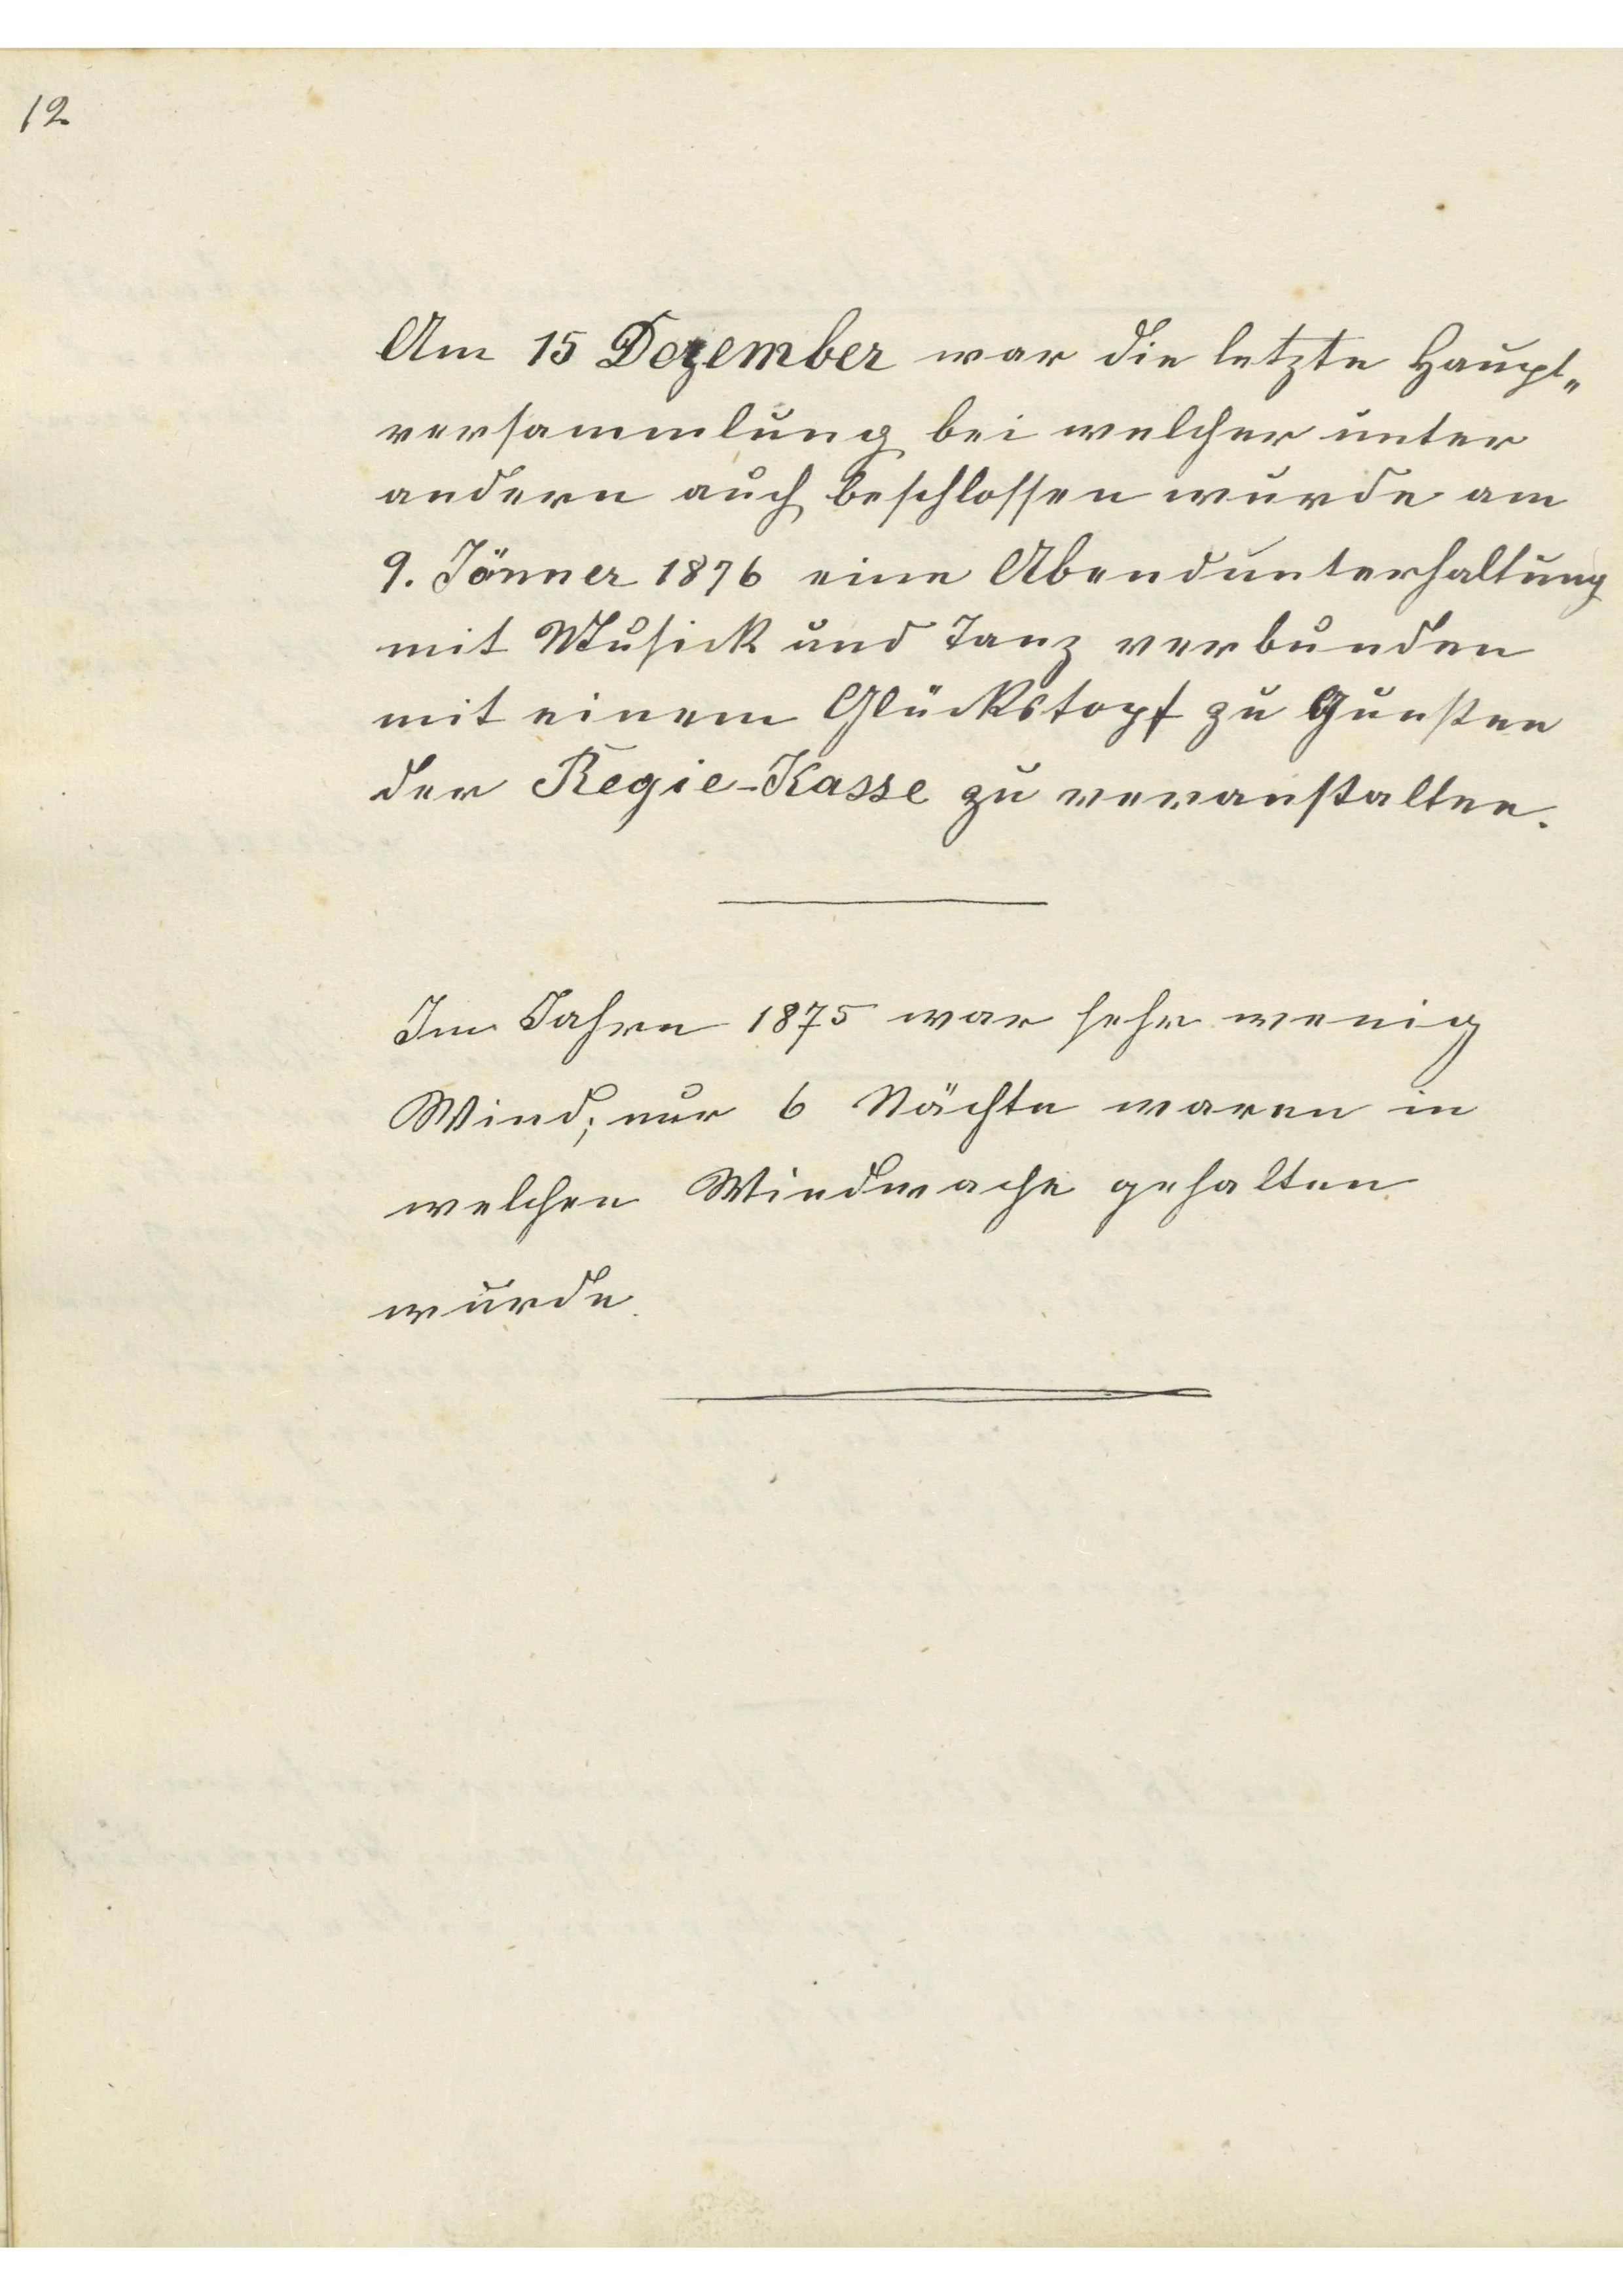 12
Am 15 Dezember war die letzte Haupt„
versammlung bei welcher unter
andern auch beschlossen wurde am
9. Jänner 1876 eine Abendunterhaltung
mit Musick und Tanz verbunden
mit einem Glückstopf zu Gunsten
der Regie-Kasse zu veranstalten.
Im Jahre 1875 war sehr wenig
Wind; nur 6 Nächte waren in
welchen Windwache gehalten
wurde.